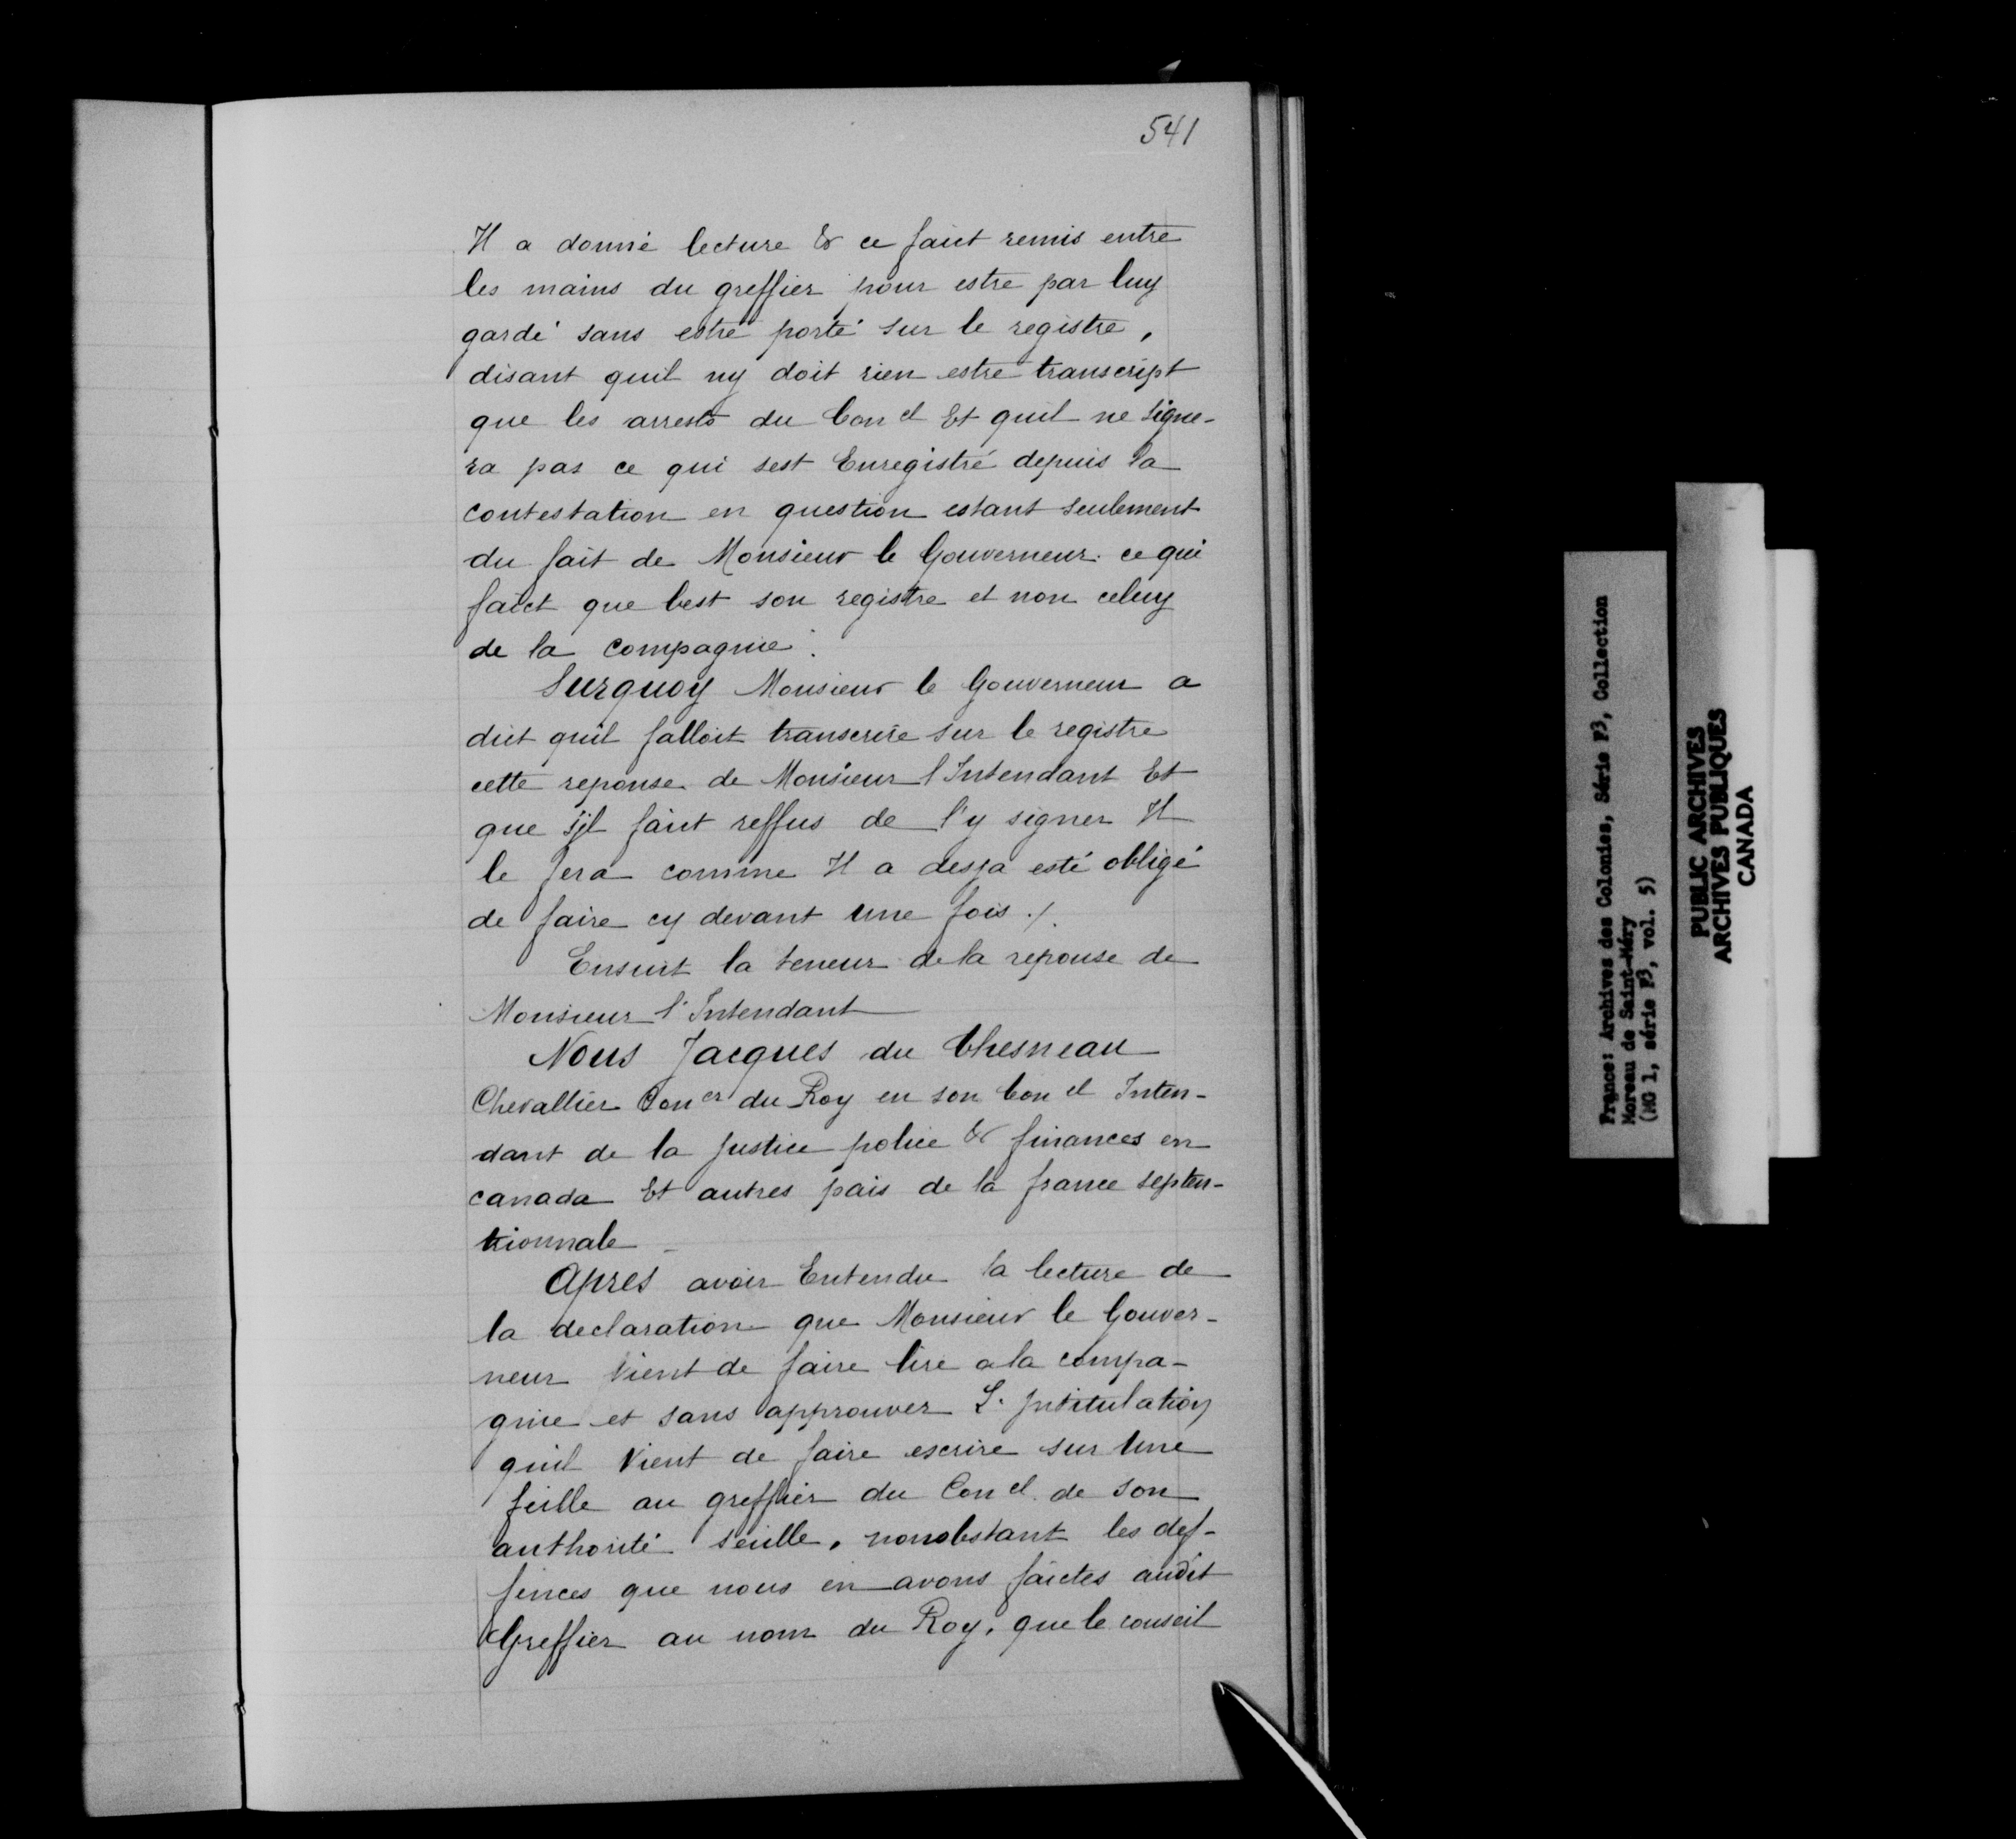 541
Il a donné lecture & ce faict remis entre
les mains du greffier pour estre par luy
gardé sans estre porté sur le registre,
disant quil ny doit rien estre transcript
que les arrests du Con el Et quil ne signe-
ra pas ce qui sest Enregistré depuis la
contestation en question estant seulement
du fait de Monsieur le Gouverneur ce qui
faict que cest son registre et non celuy
de la compagnie.
Surquoy Monsieur le Gouverneur a
dict quil falloit transcrire sur le registre
cette reponse de Monsieur l'Intendant Et
que sjl faict reffus de l'y signer Il
le fera comme Il a desja esté obligé
de faire cy devant Une fois ./.
Ensuit la teneur de la reponse de
Monsieur l'Intendant
Nous Jacques du Chesneau
Chevallier Con er du Roy en son Con el Inten-
dant de la Justice police & finances en
canada Et autres pais de la france septen-
trionnale
Apres avoir Entendu la lecture de
la declaration que Monsieur le Gouver-
neur Vient de faire lire a la compa-
gnie et sans approuver L'Jntitulation
quil Vient de faire escrire sur Une
feille au greffier du Con el. de son
authorité seulle, nonobstant les def-
fences que nous en avons faictes audit
Greffier au nom du Roy, que le conseil
France: Archives des Colonies, Série F3, Collection
Moreau de Saint-Méry
(MG 1, série F3, vol. 5)
PUBLIC ARCHIVES
ARCHIVES PUBLIQUES
CANADA